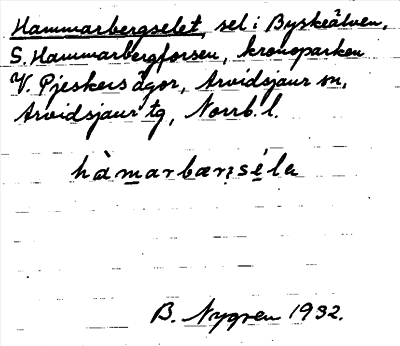 Hammarbergselet, sel i Byskeälven,
S. Hammarbergforsen, kronoparken
V. Pjeskers ägor, Arvidsjaur sn,
Arvidsjaur tg, Norrb. l.
hàmarbærˌséla
B. Nygren 1932.